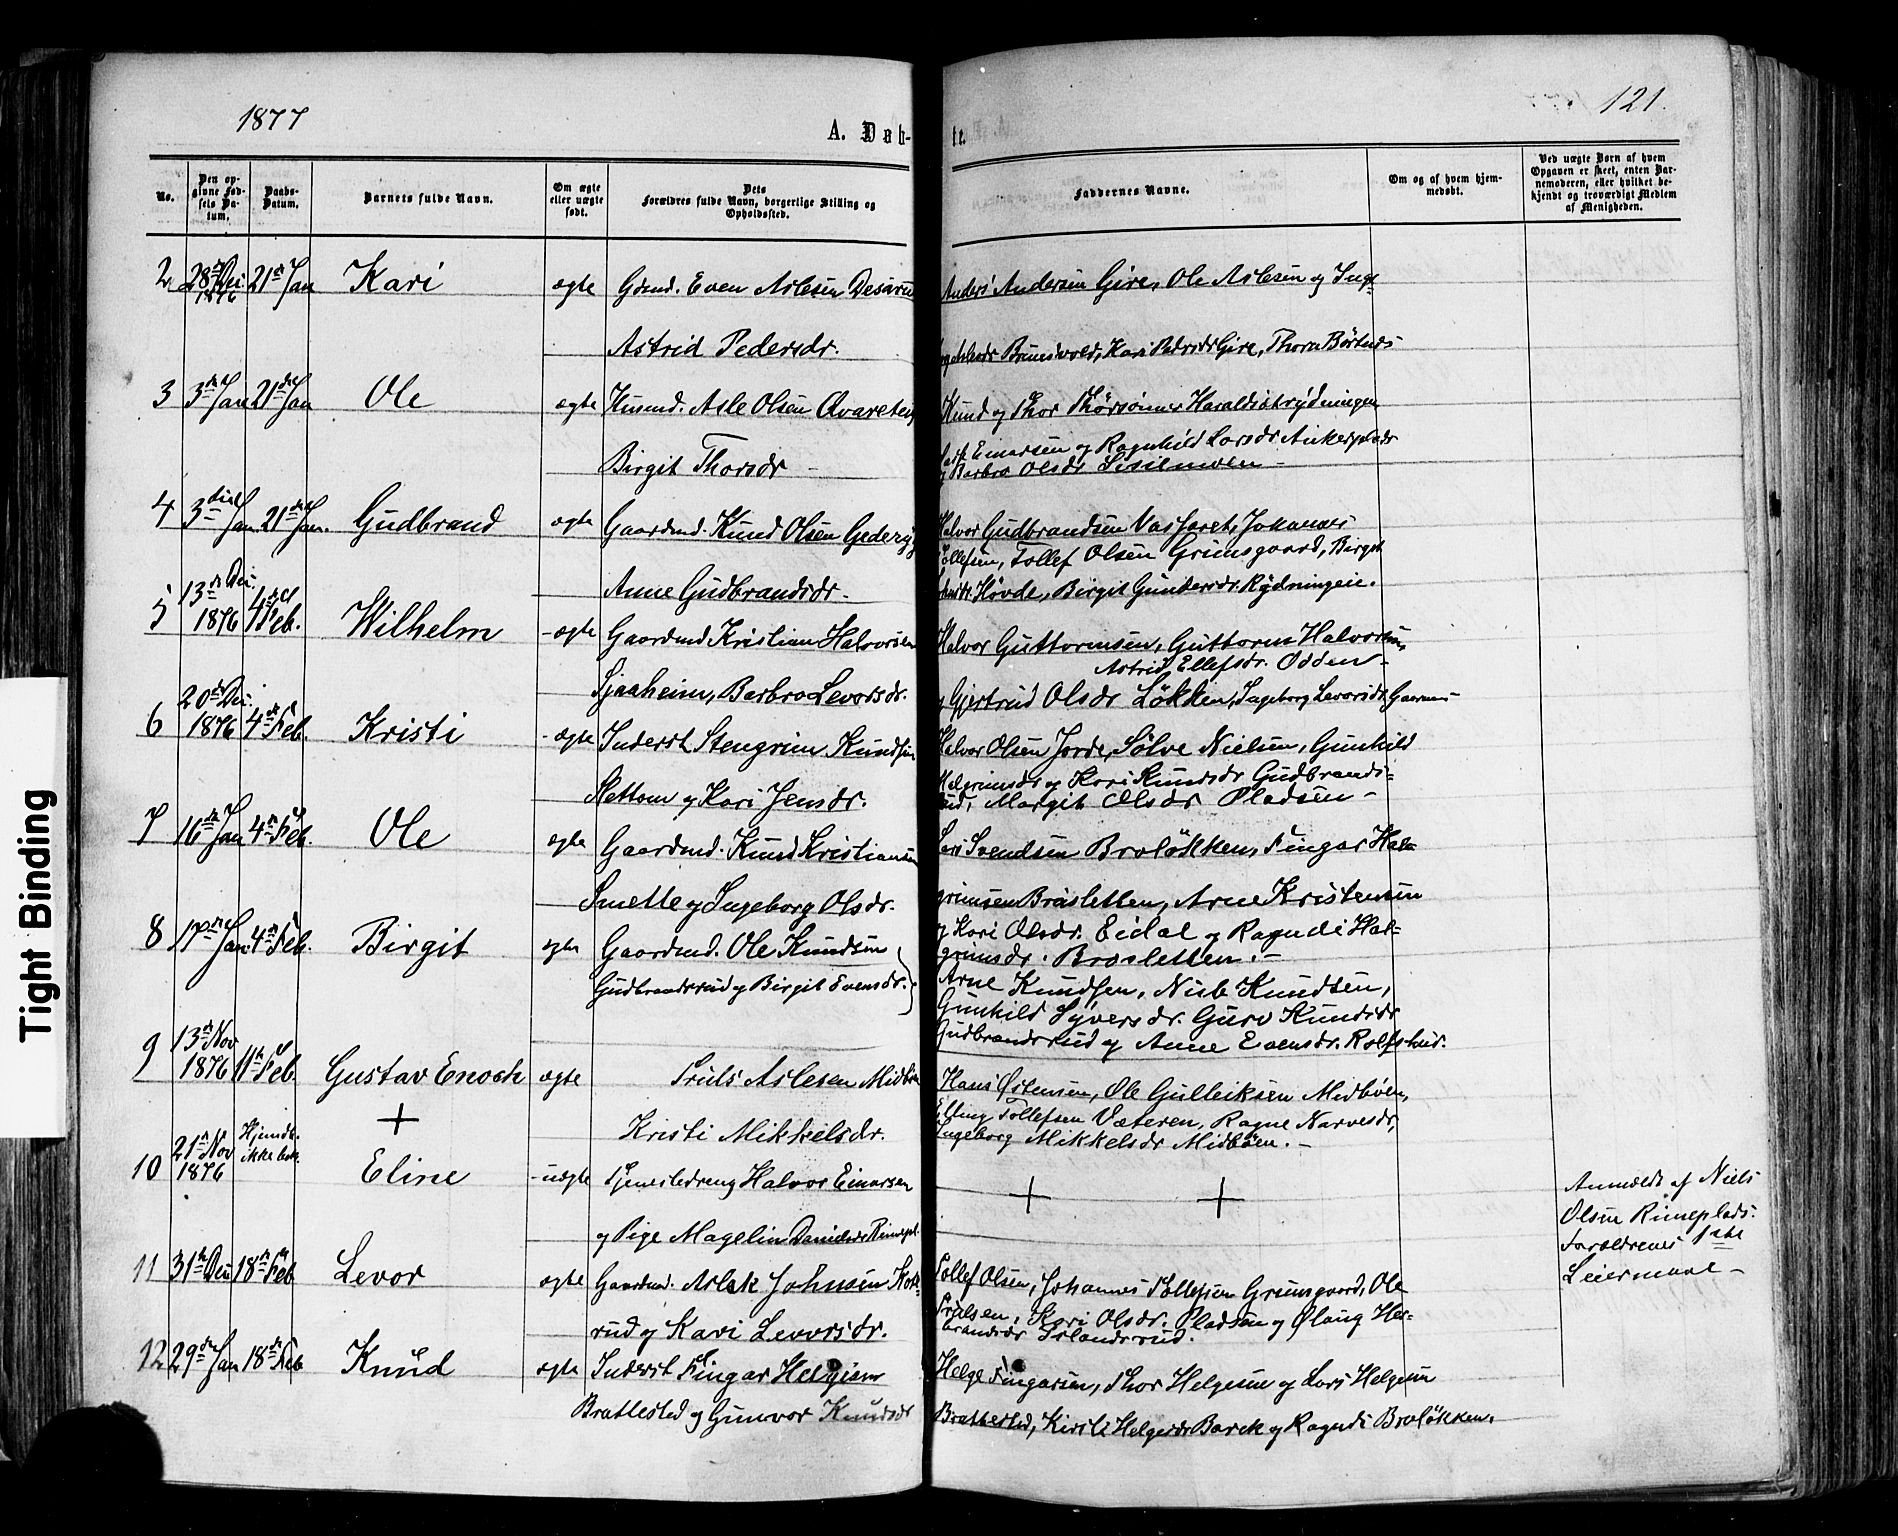 1877
121.
A. Døb-
te.
No.
Den op-
givne Fød-
sels Da-
tum.
Daabs-
Datum.
Barnets fulde Navn.
Om ægte
eller uægte
født.
Dets
Forældres fulde Navn, borgerlige Stilling og
Opholdssted.
Faddernes Navne.
Om og af hvem hjem-
medøbt.
Ved uægte Børn af hvem
Opgaven er skeet, enten Bar-
nemoderen, eller hvilket be-
kjendt og troværdigt Medlem
af Menigheden.
2 28de Dec 1876 21de Jan Kari ægte Gaardmd. Even Aslesen
Astrid Pedersdr.
Anders Andersen Gire, Ole Aslesen og
Brunsvold, Kari Pedersdr Gire, Thora
3 3die Jan 21de Jan Ole ægte Husmd. Asle Olsen
Birgit Thorsdr
Knud og Thor Thorsønner
Einarsen og Ragnhild Larsdr
Barbro Olsdr
4 3die Jan. 21de Jan. Gudbrand ægte Gaardmd. Knud Olsen
Anne Gudbrandsdr.
Halvor Gudbrandsen Johannes
Tollefsen, Tollef Olsen Grimsgaard, Birgit
Høvde, Birgit Gunkersdr. Rydningeie.
5 13de Dec. 1876 4de Feb. Wilhelm ægte Gaardmd Kristian Halvorsen
Sjaaheim, Barbro Levorsdr.
Halvor Guttormsen, Guttorm Halvorsen,
Astrid Ellefsdr. Odden
og Gjertrud Olsdr Løkken, Ingeborg Levorsdr
6 20de Dec. 1876 4de Feb. Kristi ægte Inderst Stengrim Knudsen
Slettom og Kari Jensdr.
Halvor Olsen Jorde, Sølve Nielsen, Gunhild
Helgrimsdr og Kari Knudsdr Gudbrands-
rud, Margit Olsdr Pladsen
7 16de Jan 4de Feb. Ole ægte Gaardmd. Knud Kristiansen
Smette og Ingeborg Olsdr.
Lars Svendsen Broløkken, Fingar Hal-
grimsen Brosletten, Arne Kristensen
og Kari Olsdr. Eidal og Ragndi Hal-
grimsdr. Brosletten.
8 17de Jan. 4de Feb. Birgit ægte Gaardmd. Ole Knudsen
Gudbrandsrud og Birgit Evensdr.
Arne Knudsen, Niels Knudsen,
Gunhild Syversdr. Guro Knudsdr
Gudbrandsrud og Anne Evensdr. Rolfshus.
9 13de Nov 1876 11te Feb Gustav Enock ægte Truls Aslesen Midbøen
Kristi Mikkelsdr.
Hans Østensen, Ole Gulleiksen Midbøen,
Elling Tollefsen Væteren, Ragne Narvesdr,
Ingeborg Mikkelsdr Midbøen.
10 21de Nov 1876 Hjemdb. ikke bek. Eline uægte Tjenestedreng Halvor Einarsen
og Pige Magelin Danielsdr
Anmeldt af Niels
Olsen Rimeplads.
Forældrenes 1ste
Leiermaal
11 31te Dec 18de Feb Levor ægte Gaardmd. Aslak Johnsen
rud og Kari Levorsdr.
Tollef Olsen, Johannes Tollefsen Grimsgaard, Ole
Trulsen, Kari Olsdr. Pladsen og Øloug Her-
brandsdr Islandsrud.
12 29de Jan 18de Feb Knud ægte Inderst Fingar Helgesen
Brattested og Gunvor Knudsdr
Helge Fingarsen, Thor Helgesen og Lars Helgesen
Brattested, Kirsti Helgesdr Barck og Ragndi Broløkken.
Tight Binding